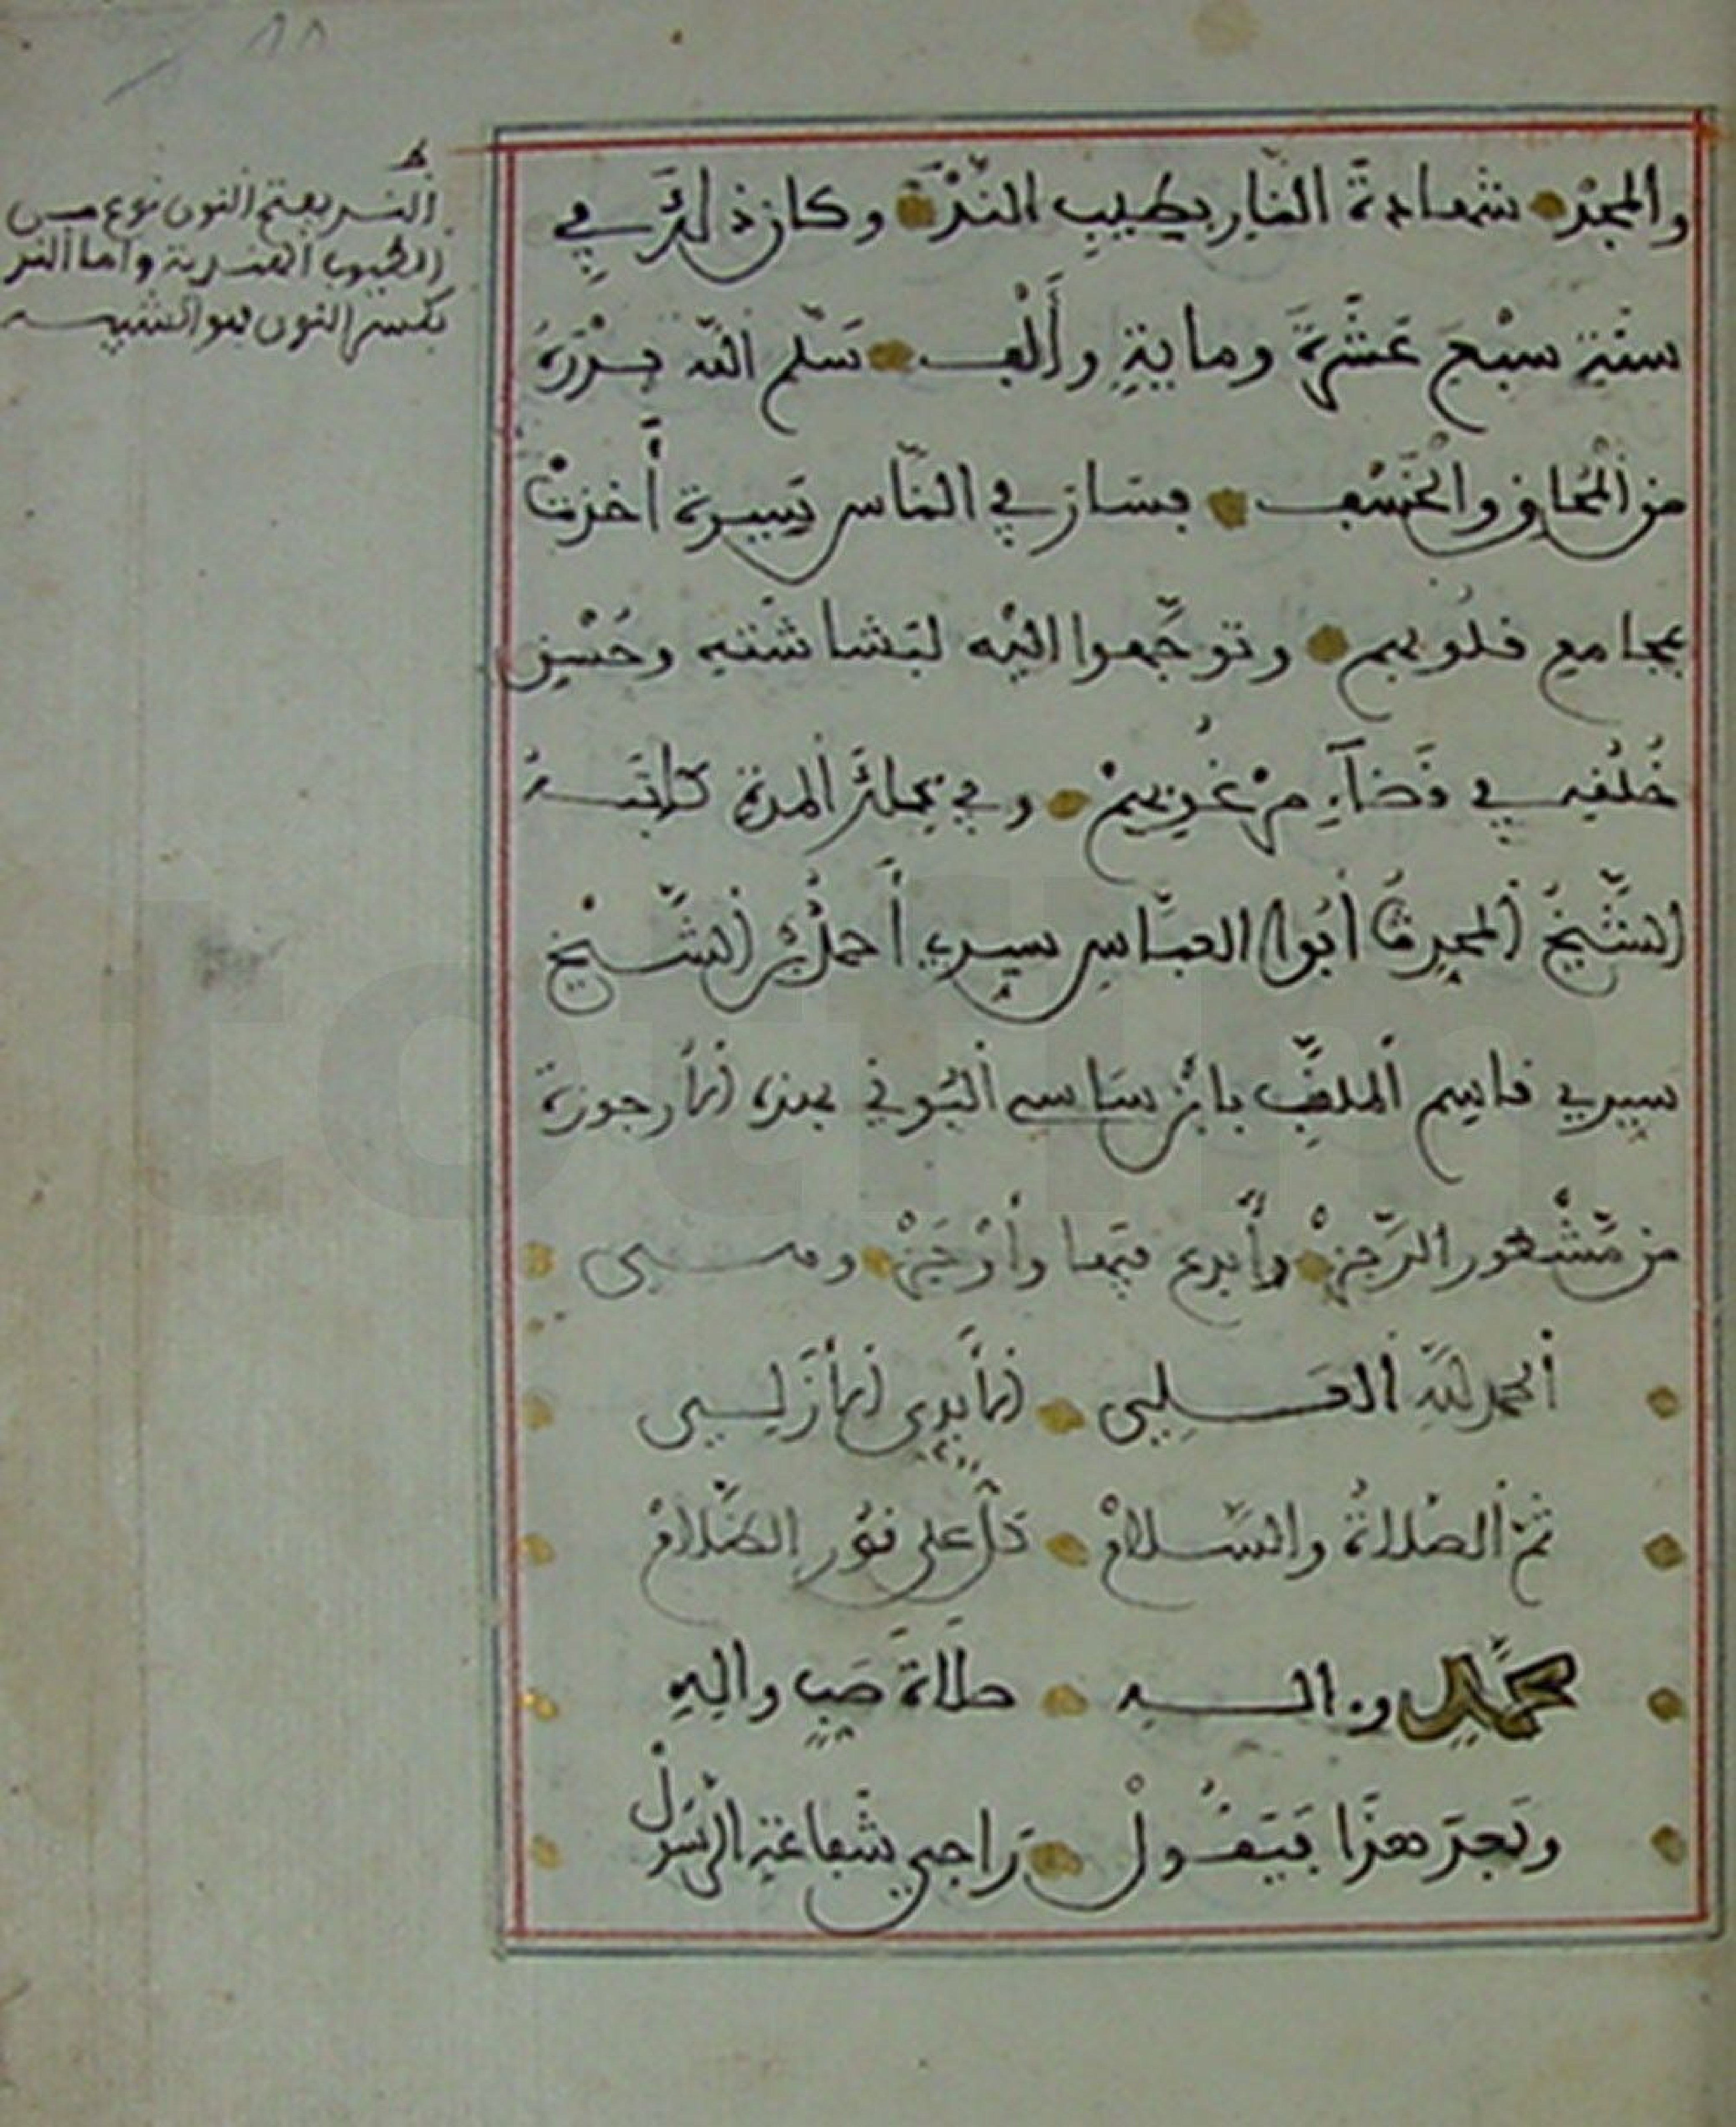 والمجد شهادة النار بطيب الند وكان ذلك في
سنة سبع عشرة وماية وألف سلم الله بدره
من المحاق والخسف فسار في الناس بسيرة أخذت
بمجامع قلوبهم وتوجهوا اليه لبشاشته وحسن
خلقه في قضاء مرغوبهم وفي تلك المدة كاتبه
الشيخ المحدث أبوا العباس سيدي أحمد بن الشيخ
سيدي قاسم الملقب بابن ساسي البوني بهذه الأرجوزة
من مشطور الرجز وأبدع فيها وأرجز وهي
الحمد لله العلي الأبدي الأزلي
ثم الصلاة والسلام كل على نور الظلام
محمد وءاله صلاة صب واله
وبعد هذا فيقول راجي شفاعة الرسول
الند بفتح النون نوع من
الطيوب العنبرية واما الند
بكسر النون فهو الشبيه